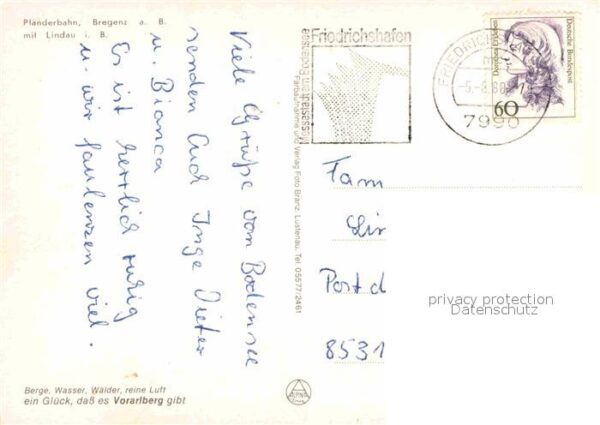 Pfänderbahn, Bregenz a. B.
mit Lindau i. B.
Viele Grüße vom Bodensee
senden Euch Inge Dieter
u. Bianca
Es ist herrlich ruhig
u. wir faulenzen viel.
Berge, Wasser, Wälder, reine Luft
ein Glück, daß es Vorarlberg gibt
Farbaufnahme und Verlag Foto Branz, Lustenau, Tel. 05577/2461
Friedrichshafen
FRIEDRICHSHAFEN
7990
Deutsche Bundespost
60
Fam
Post
8531
privacy protection
Datenschutz